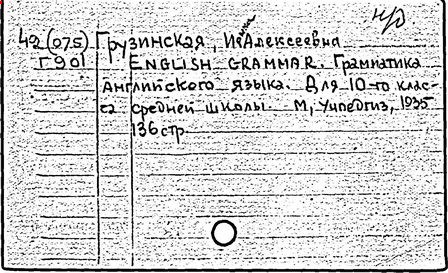 н/р
42(075) Грузинская, Ис Алексеевна
Г901 ENGLISH GRAMMAR. Грамматика
английского языка. Для 10-го клас-
са средней школы. М, Учпедгиз, 1935
136 стр.